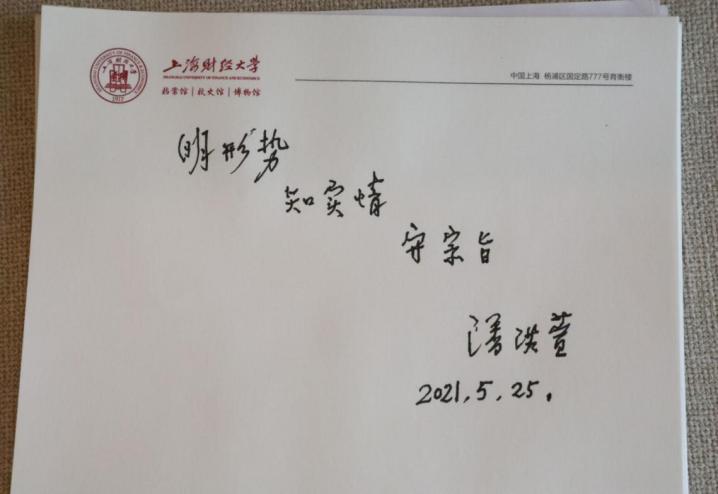 上海财经大学
SHANGHAI UNIVERSITY OF FINANCE AND ECONOMICS
档案馆|校史馆|博物馆
中国上海 杨浦区国定路777号育衡楼
明形势
知实情
守宗旨
潘洪萱
2021.5.25.